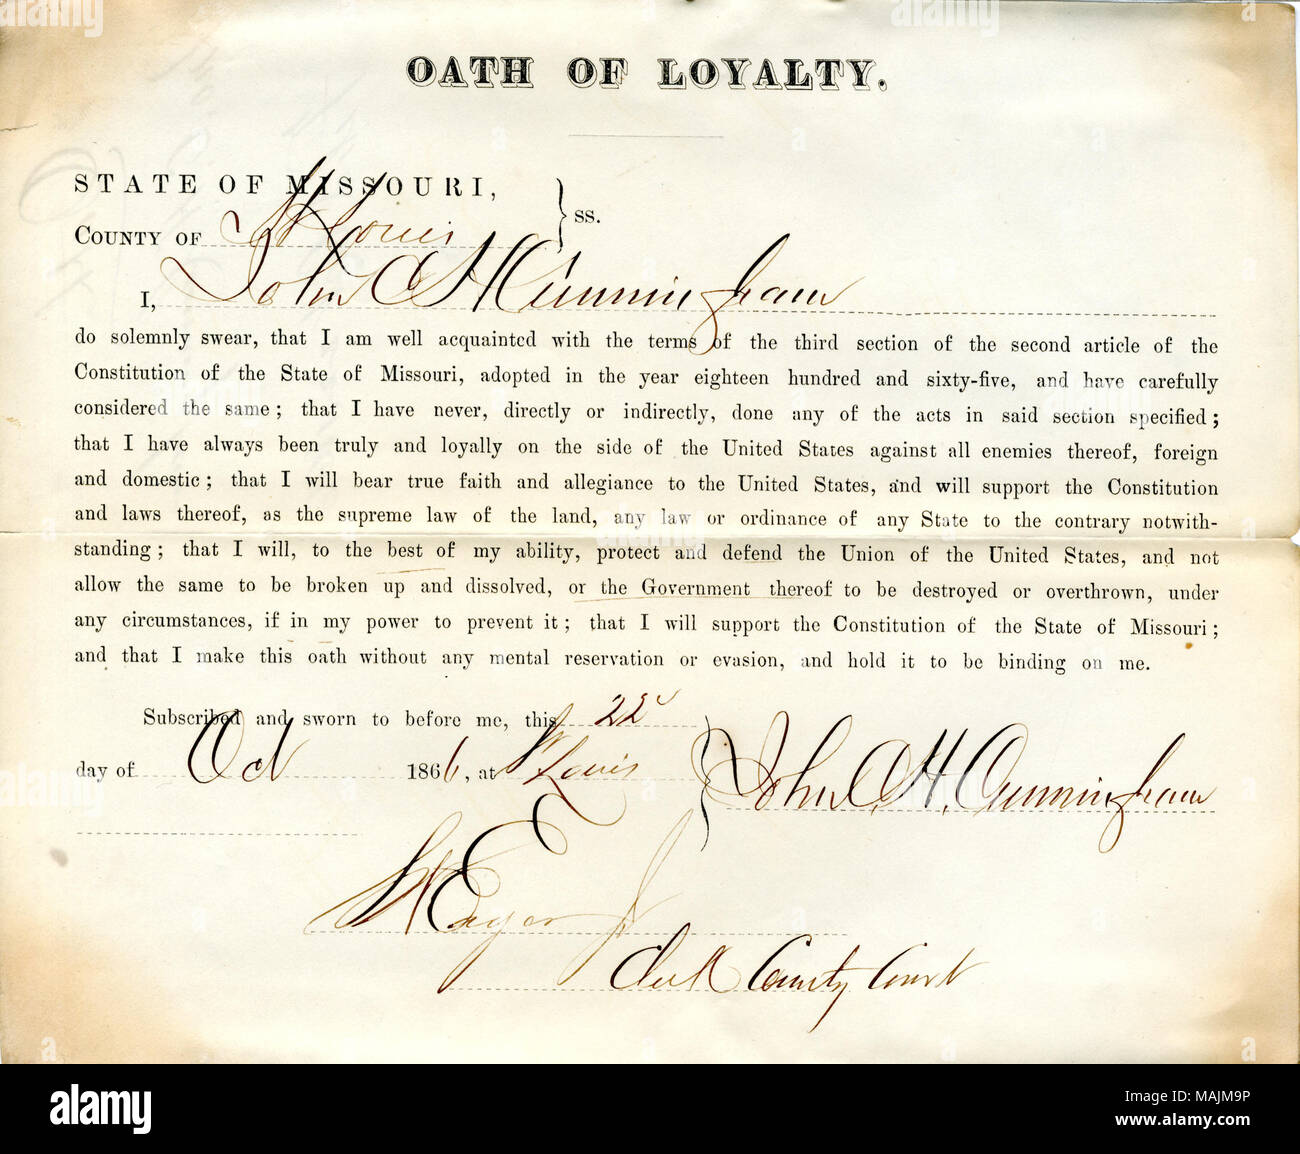 OATH OF LOYALTY.
STATE OF MISSOURI,
COUNTY OF St Louis } ss.
I, John C H Cunningham
do solemnly swear, that I am well acquainted with the terms of the third section of the second article of the
Constitution of the State of Missouri, adopted in the year eighteen hundred and sixty-five, and have carefully
considered the same; that I have never, directly or indirectly, done any of the acts in said section specified;
that I have always been truly and loyally on the side of the United States against all enemies thereof, foreign
and domestic; that I will bear true faith and allegiance to the United States, and will support the Constitution
and laws thereof, as the supreme law of the land, any law or ordinance of any State to the contrary notwith-
standing; that I will, to the best of my ability, protect and defend the Union of the United States, and not
allow the same to be broken up and dissolved, or the Government thereof to be destroyed or overthrown, under
any circumstances, if in my power to prevent it; that I will support the Constitution of the State of Missouri;
and that I make this oath without any mental reservation or evasion, and hold it to be binding on me.
Subscribed and sworn to before me, this 22d
day of Oct 1866, at St Louis
John C. H. Cunningham
Clerk County Court
a alamy
alamy
Image ID: MAJM9P
www.alamy.com